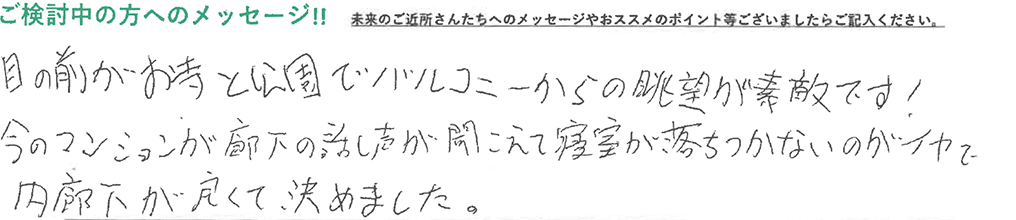 ご検討中の方へのメッセージ!! 未来のご近所さんたちへのメッセージやおススメのポイント等ございましたらご記入ください。
目の前がお寺と公園でバルコニーからの眺望が素敵です!
今のマンションが廊下の話し声が聞こえて寝室が落ちつかないのがイヤで
内廊下が良くて決めました。